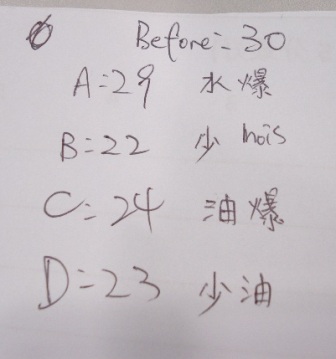 Before = 30
A = 29 水爆
B = 22 少 hois
C = 24 油爆
D = 23 少油